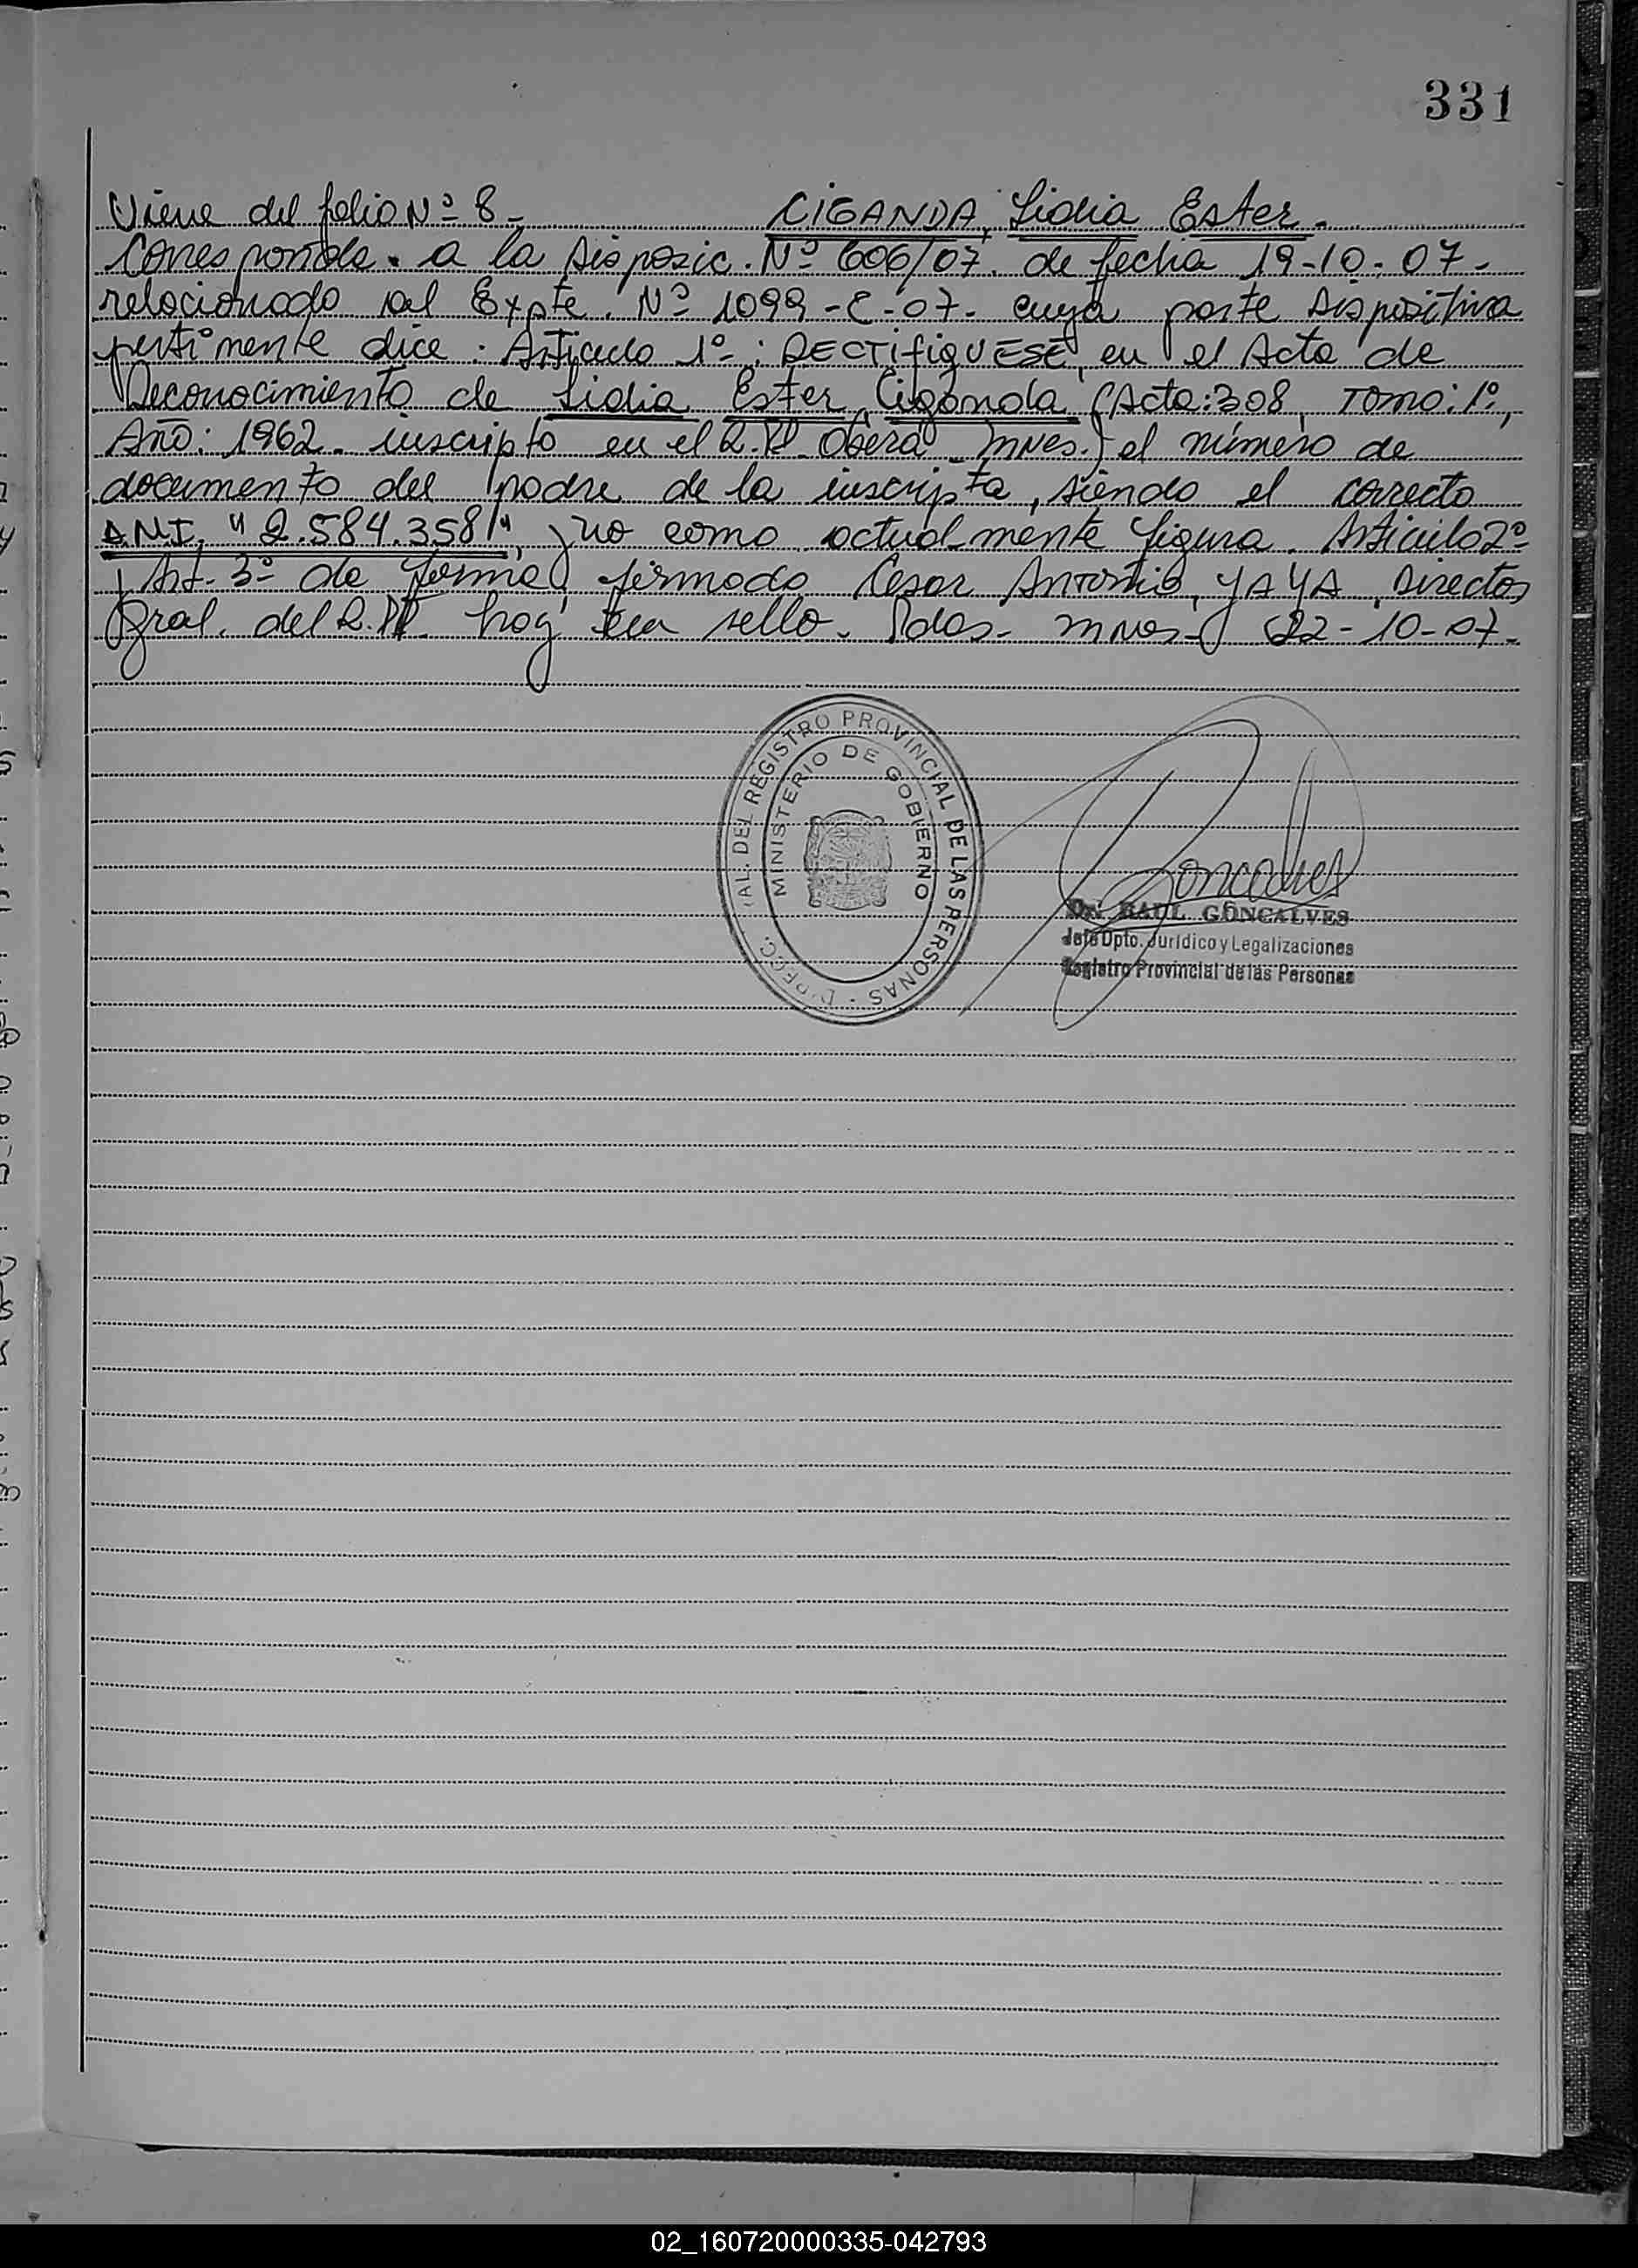 331
Viene del folio Nº 8 - CIGANDA, Lidia Ester.
Corresponde. a la Disposic. Nº 606/07. de fecha 19-10-07-
relacionado al Expte. Nº 1099-C-07- cuya parte Dispositiva
pertinente dice: Articulo 1º: RECTIFIQUESE, en el Acta de
Reconocimiento de Lidia Ester Ciganda (Acta: 308, Tomo: 1º,
Año: 1962. inscripto en el R.P. Oberá - Mnes.) el número de
documento del padre de la inscripta, siendo el correcto
D.N.I. "2.584.358", y no como actualmente figura. Articulo 2º
y Art. 3º de forma, firmado Cesar Antonio, YAYA, Director
Gral. del R.P. hay un sello. Pdas. Mnes. 22-10-07-
REGISTRO PROVINCIAL DE LAS PERSONAS
MINISTERIO DE GOBIERNO
Goncalves
Dr. RAUL GONCALVES
Jefe Dpto. Jurídico y Legalizaciones
Registro Provincial de las Personas
02_160720000335-042793